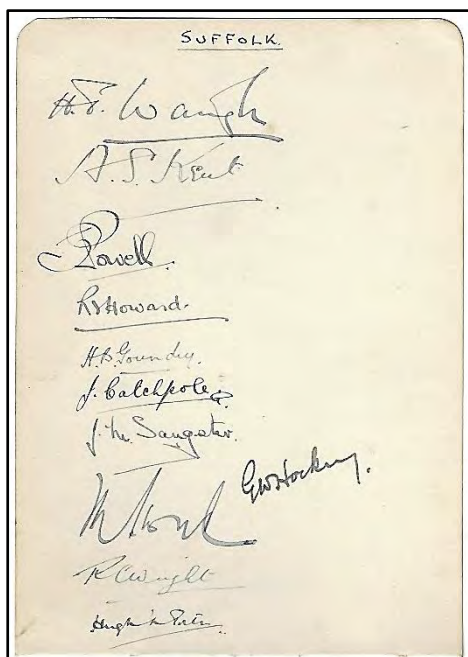 SUFFOLK.
H. E. Waugh
A. S. Kent
Powell.
R Howard.
H.B. Goundry.
J. Catchpole
J. M. Sangster.
GW Hockey.
R C Wright
Hugh